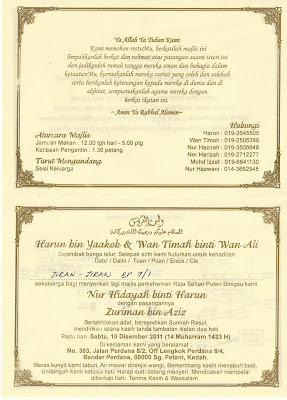 Ya Allah Ya Tuhan Kami
Kami memohon restuMu, berkatilah majlis ini
limpahkanlah berkat dan rahmat atas pasangan suami isteri ini
dan jadikanlah rumah tangga mereka aman dan bahagia dalam
ketaatanMu, kurniakanlah mereka zuriat yang soleh dan solehah
serta berikanlah ketenangan kepada mereka di dunia dan di
akhirat, sempurnakanlah agama mereka dengan
berkat ikatan ini.
~ Amin Ya Rabbal Alamin~
Aturcara Majlis
Jamuan Makan : 12.00 tgh hari - 5.00 ptg
Ketibaan Pengantin : 1.30 petang
Turut Mengundang
Seisi Keluarga
Hubungi
Harun : 019-2645505
Wan Timah : 019-2506398
Nur Hazirah : 019-3506648
Nur Harizah : 019-2712277
Mohd Izzat : 019-6641130
Nur Hazwani : 014-3662945
السلام عليكم ورحمة الله وبركاته
Harun bin Yaakob & Wan Timah binti Wan Ali
Sejambak bunga telur, Setepak sirih kami hulurkan untuk kehadiran
Dato' / Datin / Tuan / Puan / Encik / Cik
JIRAN - JIRAN BP 7/1
sekeluarga bagi menyerikan lagi majlis perkahwinan Raja Sehari Puteri Bongsu kami
Nur Hidayah binti Harun
dengan pasangannya
Zuriman bin Aziz
Bertahtakan adat, bersendikan Sunnah Rasul,
mendirikan istana kasih tanda lambaran ikatan dua hati
Pada hari Sabtu, 10 Disember 2011 (14 Muharram 1433 H)
Di kediaman kami yang beralamat :
No. 393, Jalan Perdana 8/2, Off Lengkok Perdana 8/4,
Bandar Perdana, 08000 Sg. Petani, Kedah.
Beras kunyit kami taburi, Air mawar direnjis wangi, Berkembang kasih menaburi budi,
Undangan Kami setulus hati. Harap sudi datang menyeri. Mendoakan mempelai
diberkati Ilahi. Terima Kasih & Wassalam.